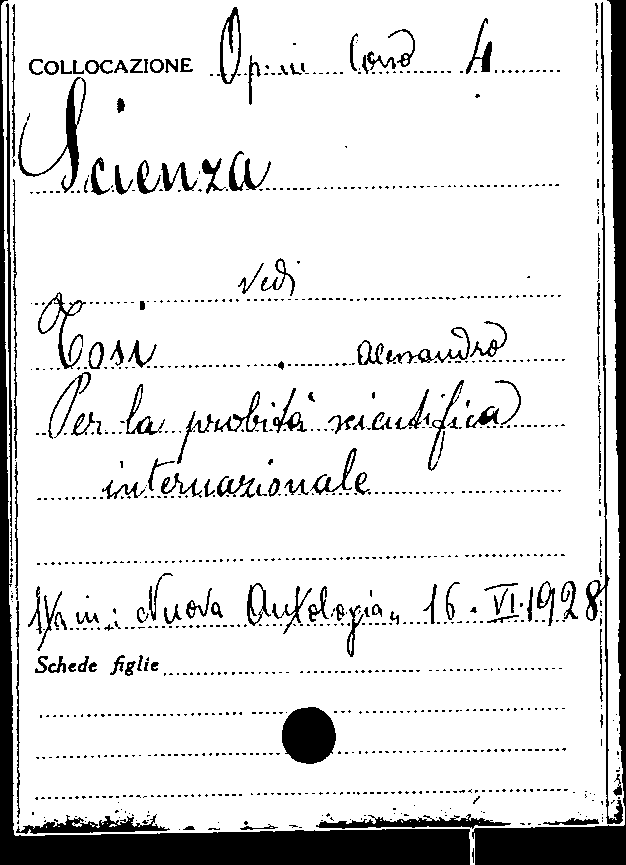 COLLOCAZIONE Op. in Corso 4
Scienza
vedi
Tosi Alessandro
Per la probità scientifica
internazionale
in: Nuova Antologia„ 16. VI. 1928
Schede figlie